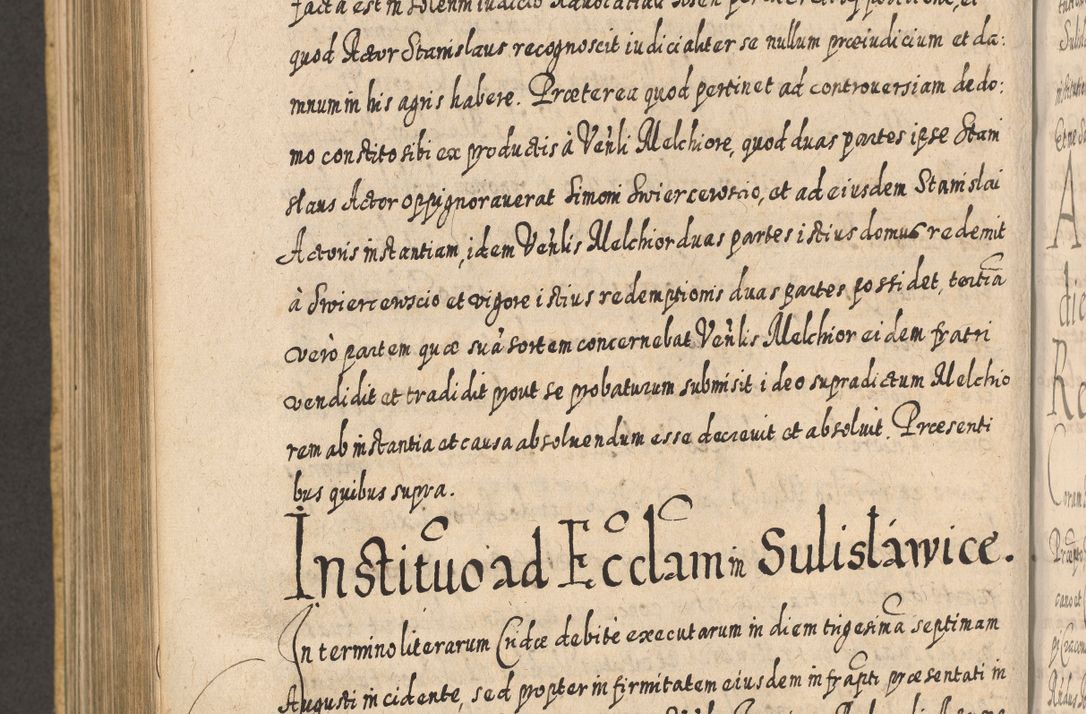 facta est in solenni iudicio
quod Actor Stanislaus recognoscit iudicialiter se nullum præiudicium et da:
mnum in his agris habere. Præterea quod pertinet ad controversiam de do:
mo constito sibi ex productis à Venli Melchiore, quod duas partes ipse Stani
slaus Actor oppignoraverat Simoni Swiercewscio, et ad eiusdem Stanislai
Actoris instantiam, idem Venlis Melchior duas partes istius domus redemit
à Swiercewscio et vigore istius redemptionis duas partes possidet, tertiã
verò partem quæ suã sortem concernebat Venlis Melchior eidem fratri
vendidit et tradidit prout se probaturum submisit ideo supradictum Melchio
rem ab instantia et causa absoluendum esse decrevit et absoluit. Præsenti
bus quibus supra.
Institutio ad Ecclam in Sulisláwice.
In termino literarum Cridæ debitè executarum in diem trigesimã septimam
Augusti incidente, sed propter infirmitatem eiusdem infrapti præsentati in